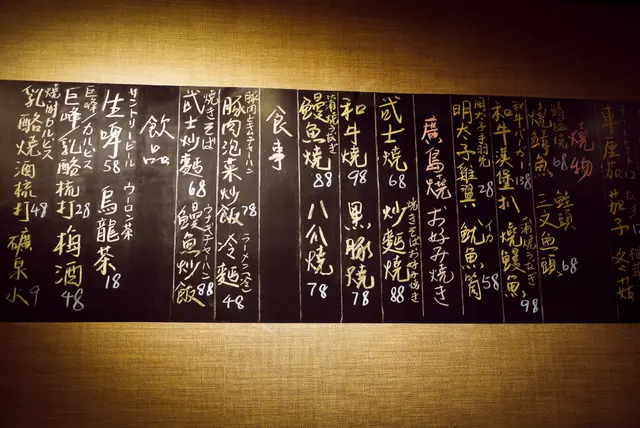 茄子 冬菇
焼物
燒鯖魚 鮭頭
三文魚頭 68
和牛バーガー
和牛漢堡扒 138
燒鰻魚 98
明太子手羽先 イカ
明太子雞翼 28 魷魚筒 58
廣島燒 お好み焼き
焼きそばお好み焼き
武士燒 68 炒麵燒 88
和牛燒 98 黒豚燒 78
蒲焼うなぎ
鰻魚燒 88 八爪燒 78
食事
豚肉キムチチャーハン ラーメン(冷)
豚肉泡菜炒飯 78 冷麵 48
焼きそば ウナギチャーハン
武士炒麵 68 鰻魚炒飯 88
飲品
サントリービール ウーロン茶
生啤 58 烏龍茶 18
巨峰/カルピス
巨峰乳酪梳打 28 梅酒 48
焼酎カルピス
乳酪燒酒梳打 48 礦泉水 9